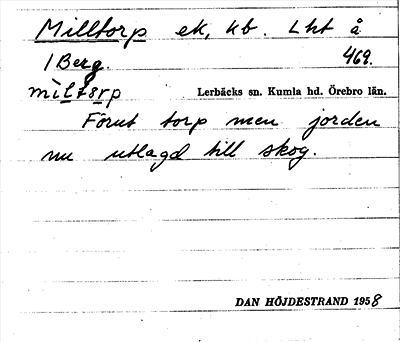 Milltorp ek, kb. Lht å
1 Berg. 469.
miltorp Lerbäcks sn. Kumla hd. Örebro län.
Förut torp men jorden
nu utlagd till skog.
DAN HÖJDESTRAND 1958